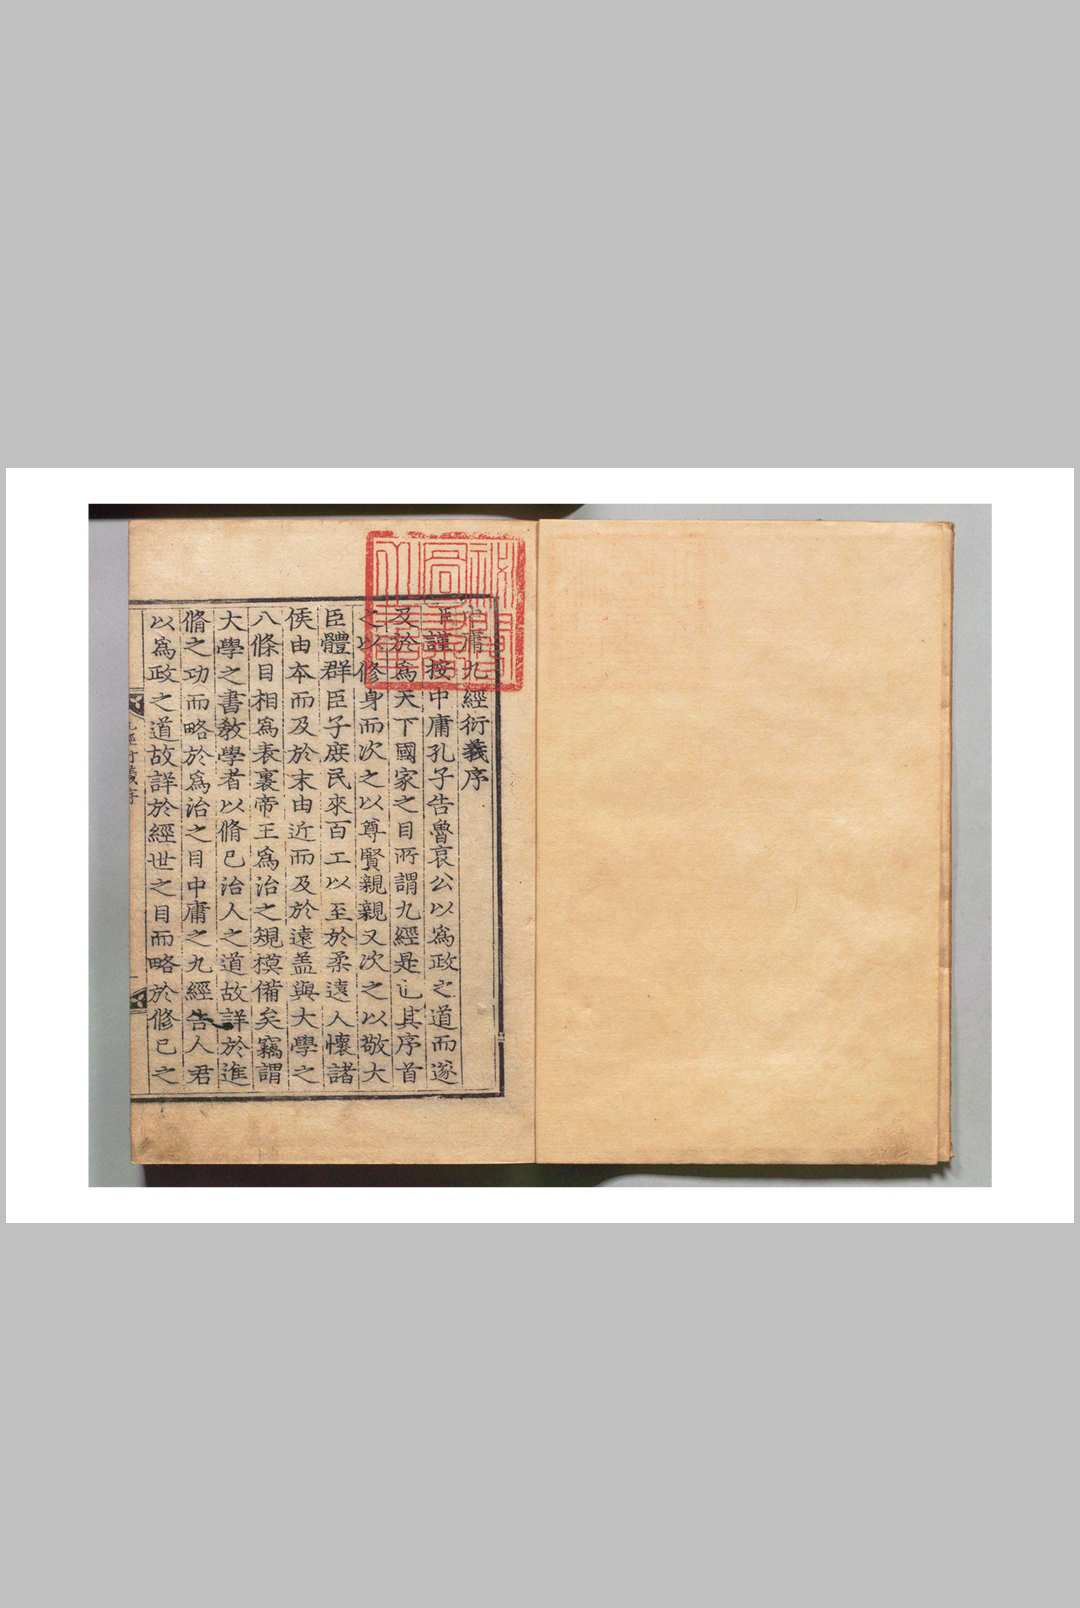 中庸九經衍義序
臣謹按中庸孔子告魯哀公以爲政之道而遂
及於爲天下國家之目所謂九經是也其序首
之以修身而次之以尊賢親親又次之以敬大
臣體群臣子庶民來百工以至於柔遠人懷諸
侯由本而及於末由近而及於遠盖與大學之
八條目相爲表裏帝王爲治之規模備矣竊謂
大學之書敎學者以脩己治人之道故詳於進
脩之功而略於爲治之目中庸之九經告人君
以爲政之道故詳於經世之目而略於修己之
九經衍義序